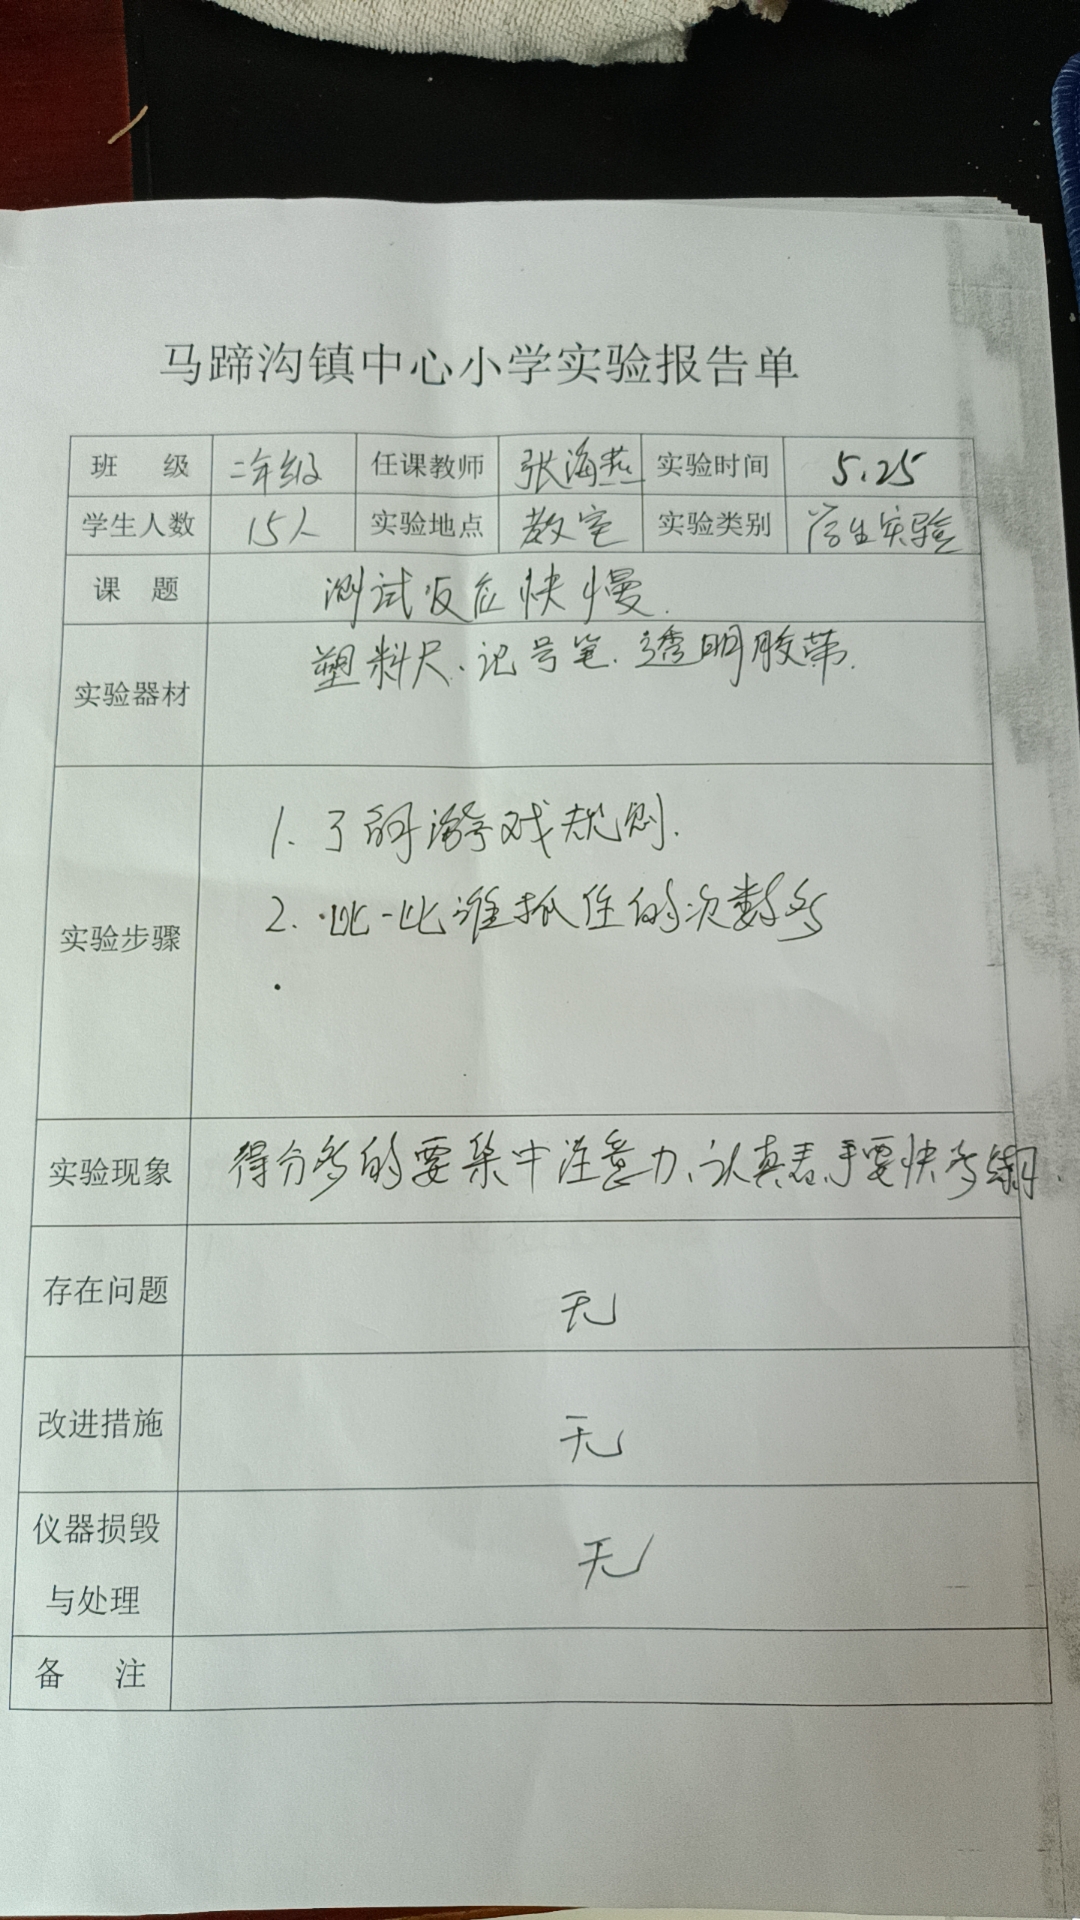 马蹄沟镇中心小学实验报告单
班 级 二年级 任课教师 张海燕 实验时间 5.25
学生人数 15人 实验地点 教室 实验类别 学生实验
课 题 测试反应快慢.
实验器材 塑料尺、记号笔、透明胶带.
实验步骤
1. 了解游戏规则.
2. 比一比谁抓住的次数多
实验现象 得分多的要集中注意力、认真看、手要快多练习.
存在问题 无
改进措施 无
仪器损毁
与处理 无
备 注